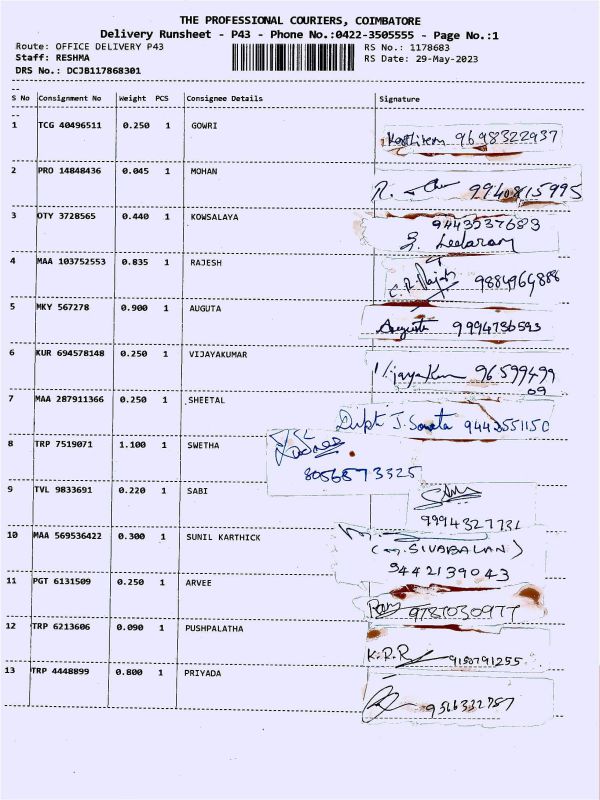 THE PROFESSIONAL COURIERS, COIMBATORE
Delivery Runsheet - P43 - Phone No.:0422-3505555 - Page No.:1
Route: OFFICE DELIVERY P43 RS No.: 1178683
Staff: RESHMA RS Date: 29-May-2023
DRS No.: DCJB117868301
S No Consignment No Weight PCS Consignee Details Signature
1 TCG 40496511 0.250 1 GOWRI
9698322937
2 PRO 14848436 0.045 1 MOHAN
9940815995
3 OTY 3728565 0.440 1 KOWSALAYA
9443537683
4 MAA 103752553 0.835 1 RAJESH
C.R. Rajesh 9884964888
5 MKY 567278 0.900 1 AUGUTA
Augusta 9994736593
6 KUR 694578148 0.250 1 VIJAYAKUMAR
Vijayakum 96599499
09
7 MAA 287911366 0.250 1 SHEETAL
J. 9443551150
8 TRP 7519071 1.100 1 SWETHA
8056873325
9 TVL 9833691 0.220 1 SABI
9994327731
10 MAA 569536422 0.300 1 SUNIL KARTHICK
(M. SIVABALAN)
9442139043
11 PGT 6131509 0.250 1 ARVEE
9787030977
12 TRP 6213606 0.090 1 PUSHPALATHA
K.R.R 9150791255
13 TRP 4448899 0.800 1 PRIYADA
9566332787